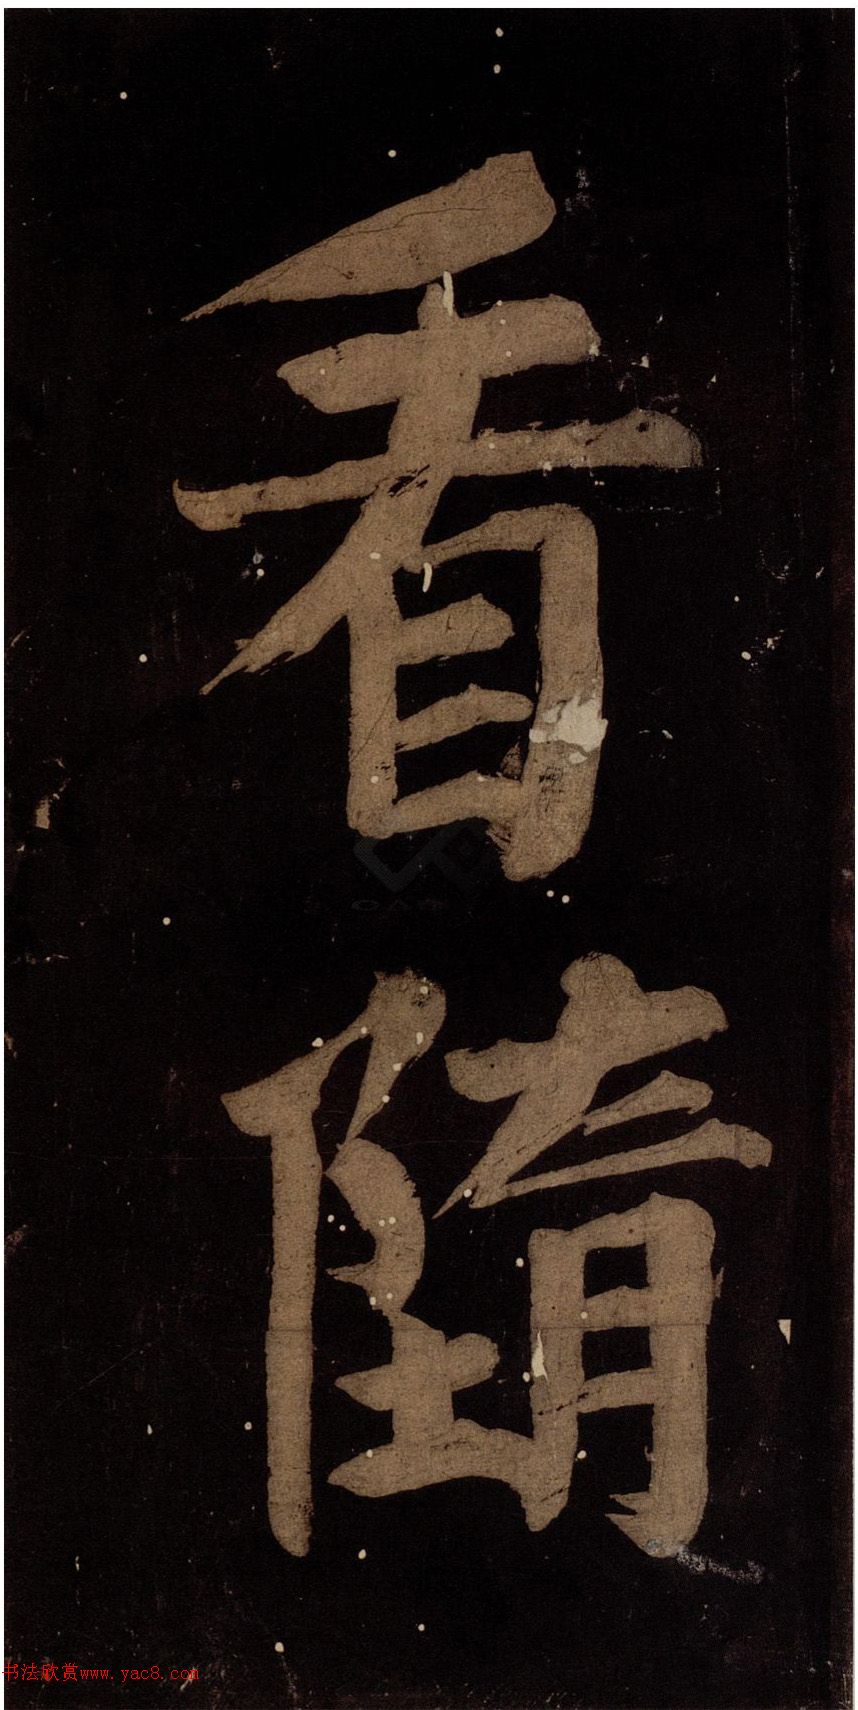 看
墮
书法欣赏www.yac8.com